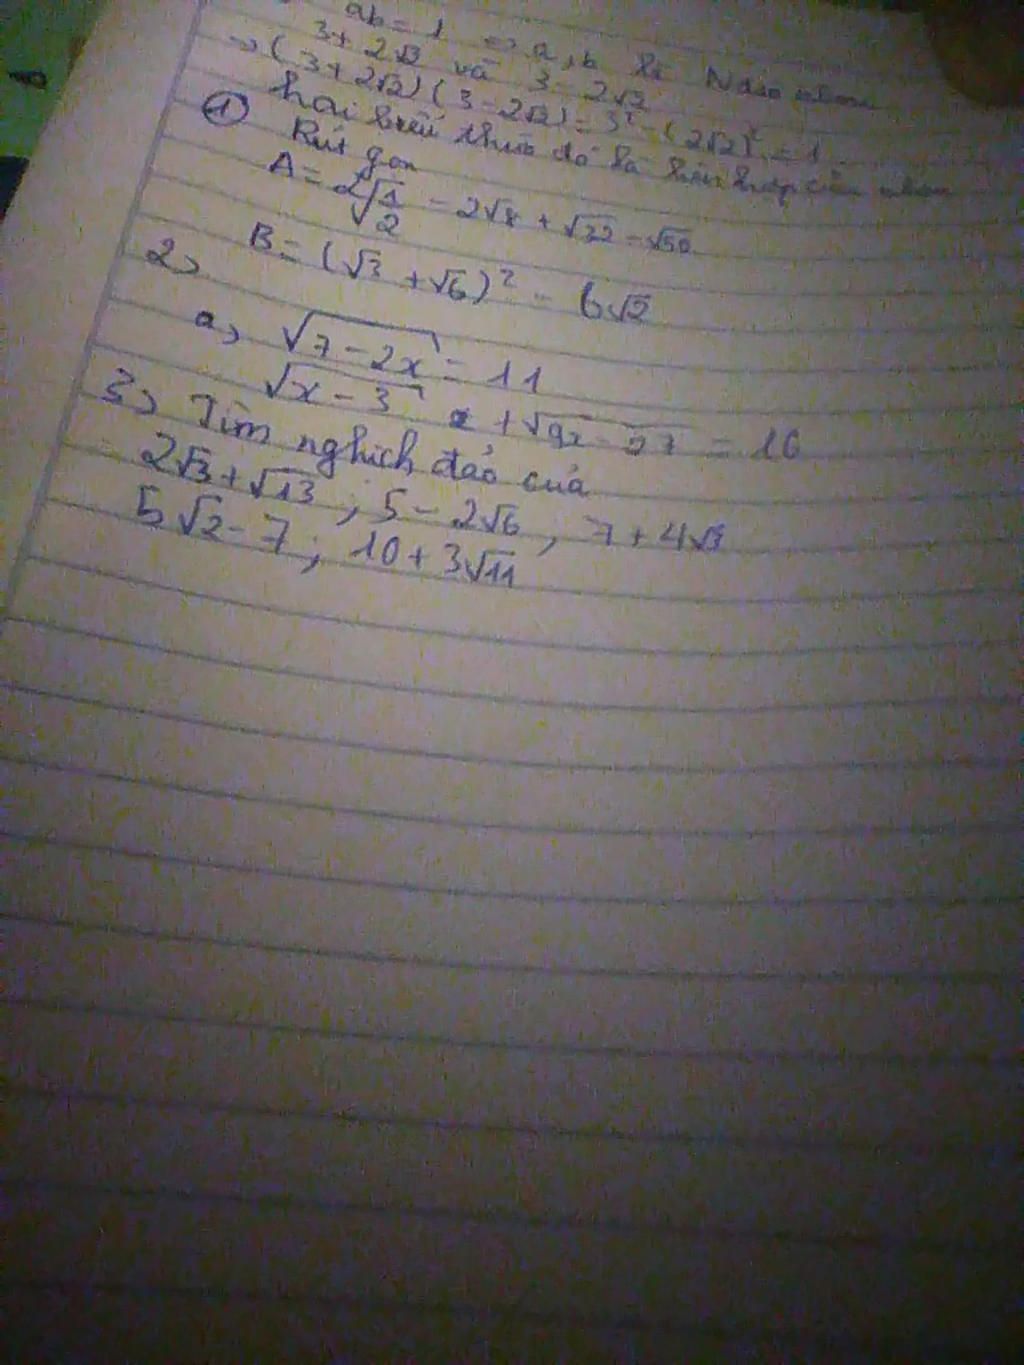 ab = 1 => a, b là N đảo nhau
3 + 2√2 và 3 - 2√2
-> (3 + 2√2)(3 - 2√2) = 3² - (2√2)² = 1
hai biểu thức đó là liên hợp của nhau
① Rút gọn
A = 2√(1/2) - 2√8 + √32 - √50
B = (√3 + √6)² - 6√2
2>
a, √(7 - 2x) = 11
√(x - 3) + √(9x - 27) = 16
3> Tìm nghịch đảo của
2√3 + √13 ; 5 - 2√6 , 7 + 4√3
5√2 - 7 ; 10 + 3√11